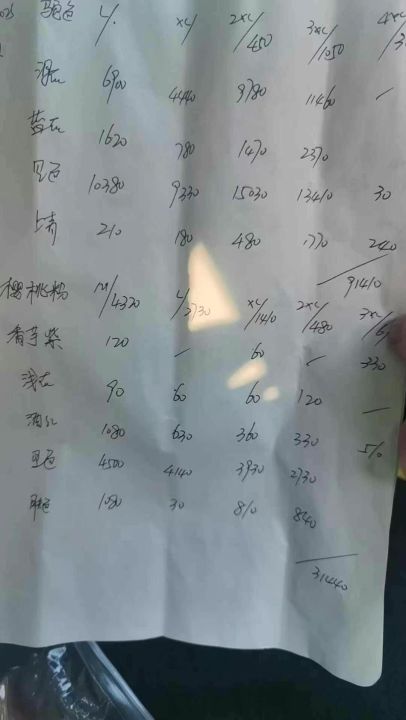 驼色 L/. XL/ 2XL/450 3XL/1050 4XL/3
深灰 6900 4440 9780 11460 —
蓝灰 1620 780 1470 2370
黑色 10380 9330 15030 13410 30
210 180 480 1770 240
91410
樱桃粉 M/4320 L/2730 XL/1410 2XL/480 3XL/6
香芋紫 120 — 60 — 330
浅灰 90 60 60 120 —
酒红 1080 630 360 330 510
黑色 4500 4140 3930 2730
1080 30 810 840
31440